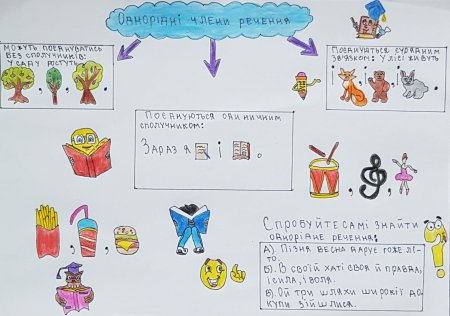 Однорідні члени речення
Можуть поєднуватись
без сполучників:
У саду ростуть
Поєднуються сурядним
зв'язком: У лісі живуть
Поєднуються одиничним
сполучником:
Зараз я і .
Спробуйте самі знайти
однорідне речення:
А). Пізня весна дарує гоже лі-
то.
Б). В своїй хаті своя й правда,
і сила, і воля.
В). Ой три шляхи широкії до-
купи зійшлися.